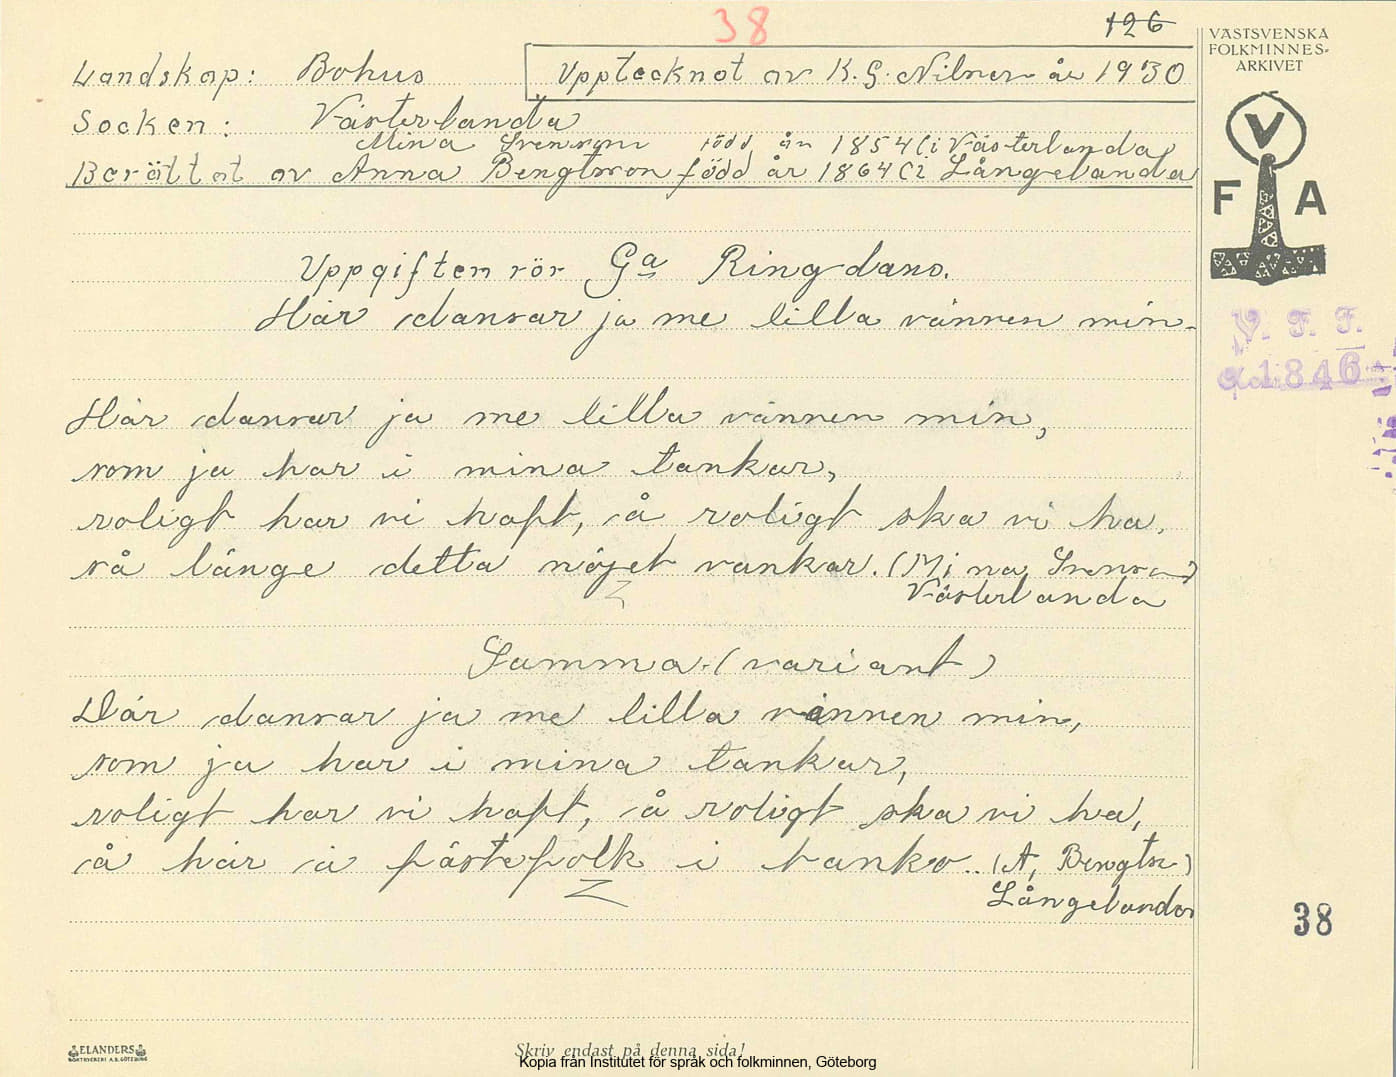 38
126
VÄSTSVENSKA
FOLKMINNES-
ARKIVET
Landskap: Bohus
Upptecknat av K. G. Nilner år 1930
Socken: Västerlanda
Mina Svenson född år 1854 (i Västerlanda
Berättat av Anna Bengtsson född år 1864 (i Långelanda
V
F A
Uppgiften rör Ga Ringdans.
Här dansar ja me lilla vännen min-
V. F. F.
1846
Här dansar ja me lilla vännen min,
som ja har i mina tankar,
roligt har vi haft, å roligt ska vi ha,
så länge detta nöjet vankar. (Mina Svenson)
Västerlanda
Samma. (variant)
Där dansar ja me lilla vännen min,
som ja har i mina tankar,
roligt har vi haft, å roligt ska vi ha,
å här ä fästefolk i tanko.. (A, Bengts)
Långelanda
38
ELANDERS
BOKTRYCKERI A.B. GÖTEBORG
Skriv endast på denna sida!
Kopia från Institutet för språk och folkminnen, Göteborg